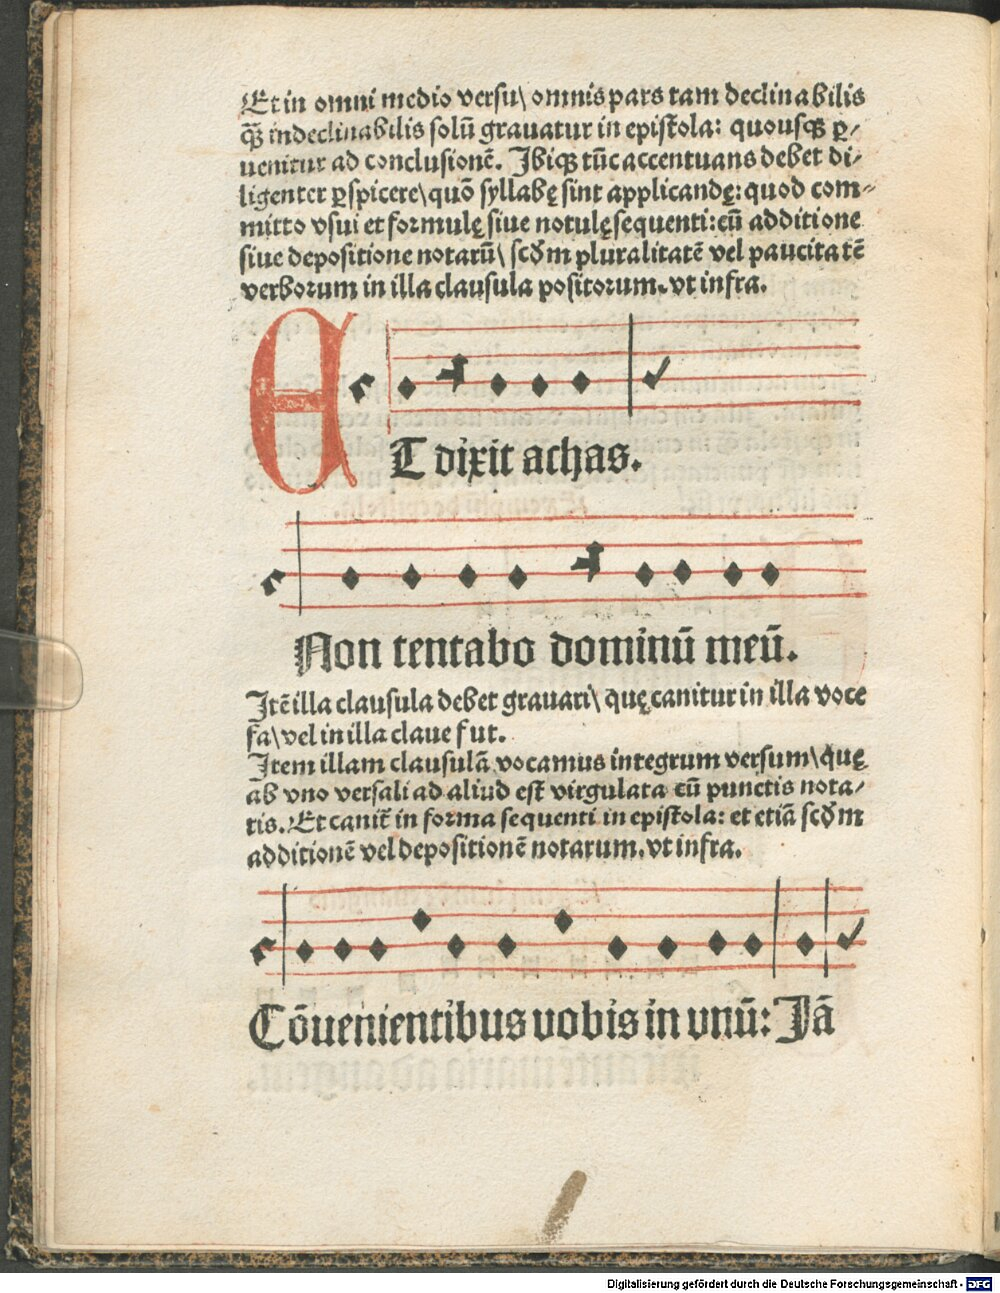 Et in omni medio versu\ omnis pars tam declinabilis
q̃ꝫ indeclinabilis solū grauatur in epistola: quousqꝫ ꝑ/
uenitur ad conclusionē. Ibiqꝫ tūc accentuans debet di/
ligenter ꝑspicere\ quō syllabę sint applicandę: quod com⸗
mitto vsui et formulę siue notulę sequenti: cū additione
siue depositione notarū\ scd̄m pluralitatē vel paucitatē
verborum in illa clausula positorum. vt infra.
ET dixit achas.
Non tentabo dominū meū.
Itē illa clausula debet grauari\ quę canitur in illa voce
fa\ vel in illa claue f ut.
Item illam clausulā vocamus integrum versum\ q̇uę
ab vno versali ad aliud est virgulata cū punctis nota/
tis. Et canit̄ in forma sequenti in epistola: et etiā scd̄m
additionē vel depositionē notarum. vt infra.
Cōuenientibus vobis in vnū: Iā
Digitalisierung gefördert durch die Deutsche Forschungsgemeinschaft - DFG